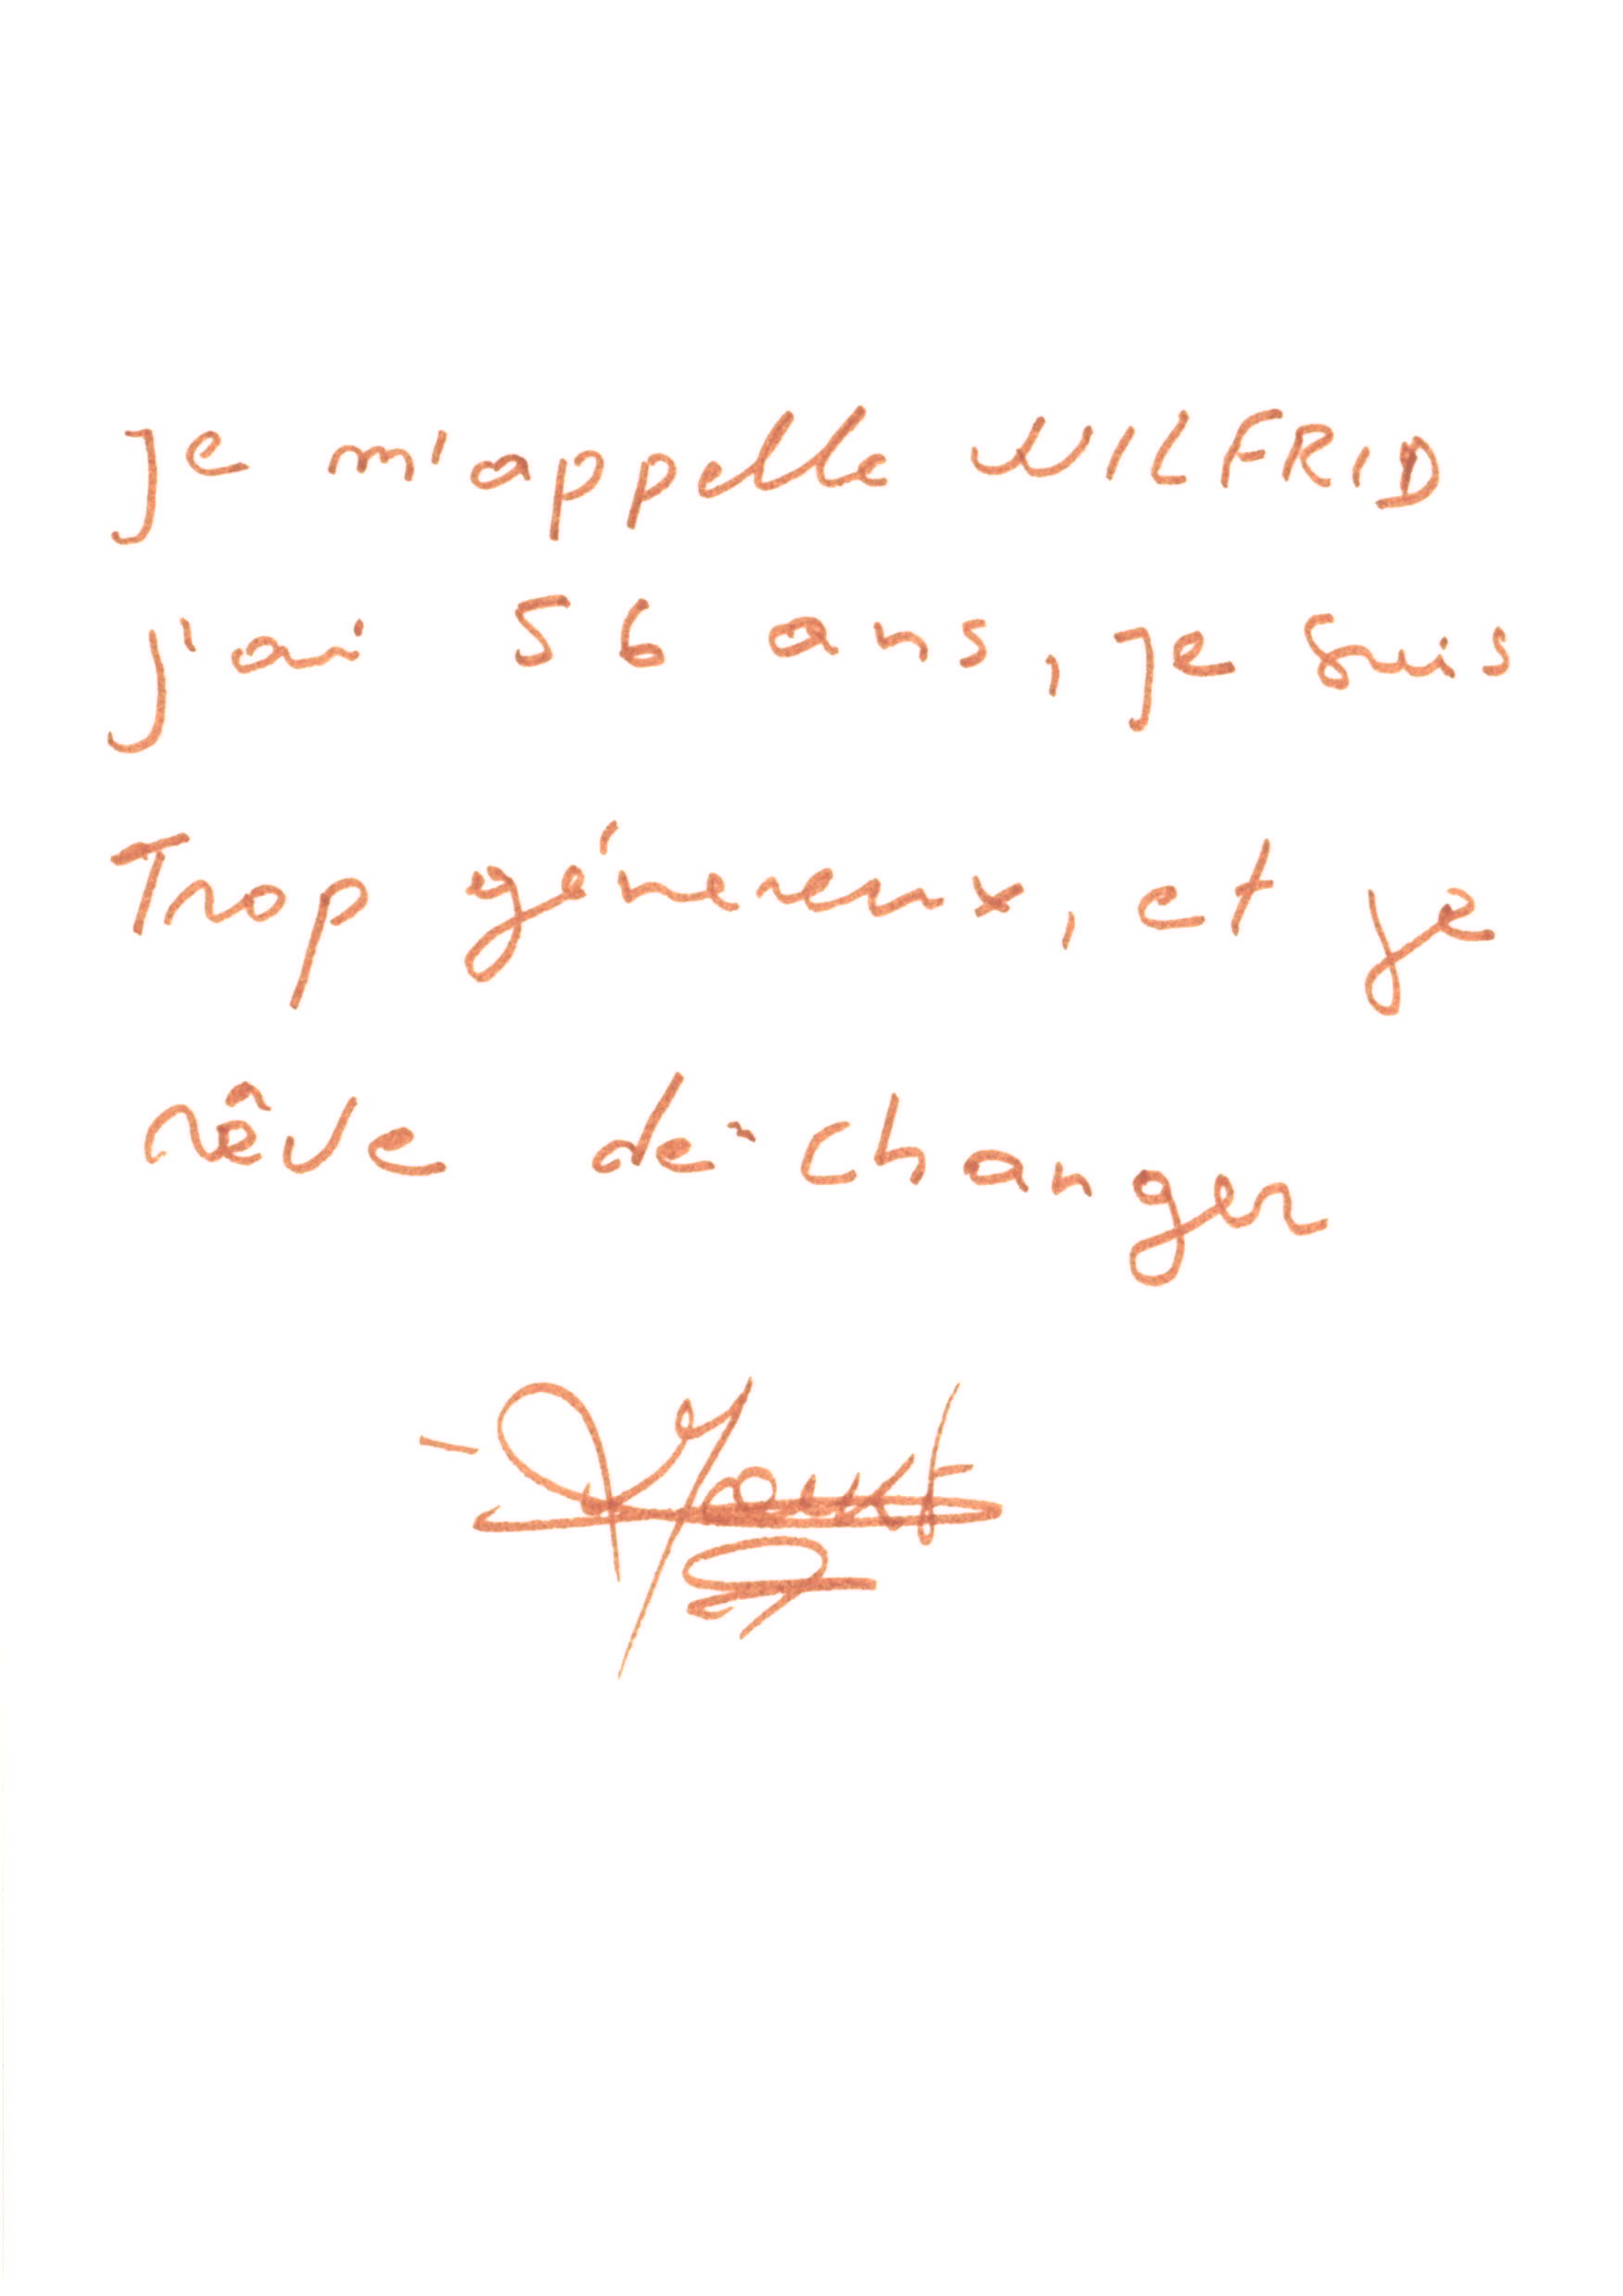 je m'appelle WILFRID
j'ai 56 ans, je suis
Trop généreux, et je
rêve de changer